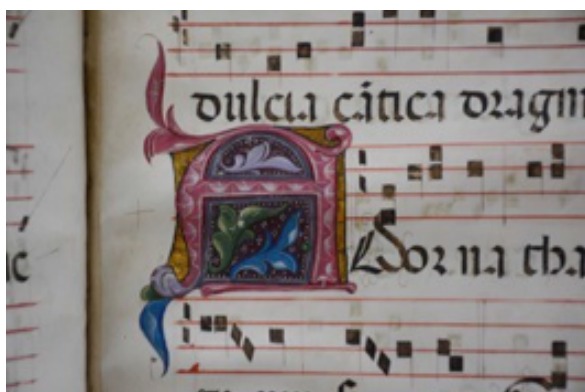 dulcia cãtica dragm
Adorna tha